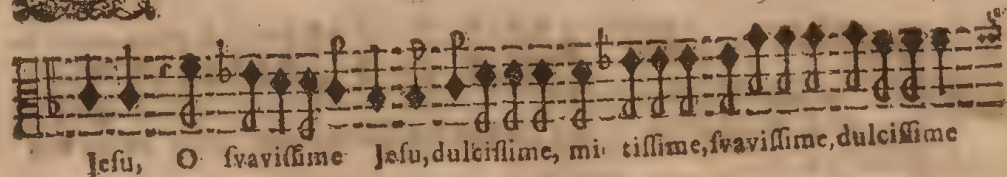 Jesu, O svavissime Jesu, dulcissime, mi tissime, svavissime, dulcissime